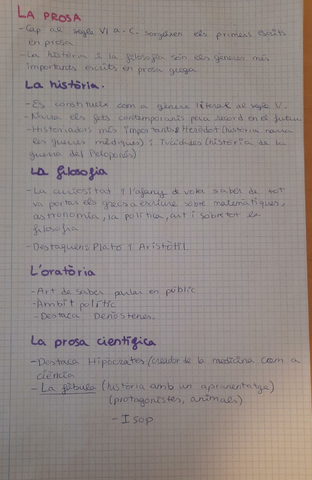 LA PROSA
- Cap al segle VI a.C. sorgeixen els primers escrits
en prosa
- La història i la filosofia són els gèneres més
importants escrits en prosa grega
La història.
- Es constitueix com a gènere literari al segle V.
- Narra els fets contemporanis pera record en el futur
- Historiadors més importants: Heròdot (història narra
les guerres mèdiques) i Tucídides (història de la
guerra del Peloponès)
La filosofia
- La curiositat i l'afany de voler saber de tot
va portar els grecs a escriure sobre matemàtiques,
astronomia, la política, art i sobretot la
filosofia
- Destaquen Plató i Aristòtil
L'oratòria
- Art de saber parlar en públic
- Àmbit polític
- Destaca Demòstenes.
La prosa científica
- Destaca Hipòcrates (creador de la medicina com a
ciència
- La fàbula (història amb un aprenentatge)
(protagonistes, animals)
- Isop